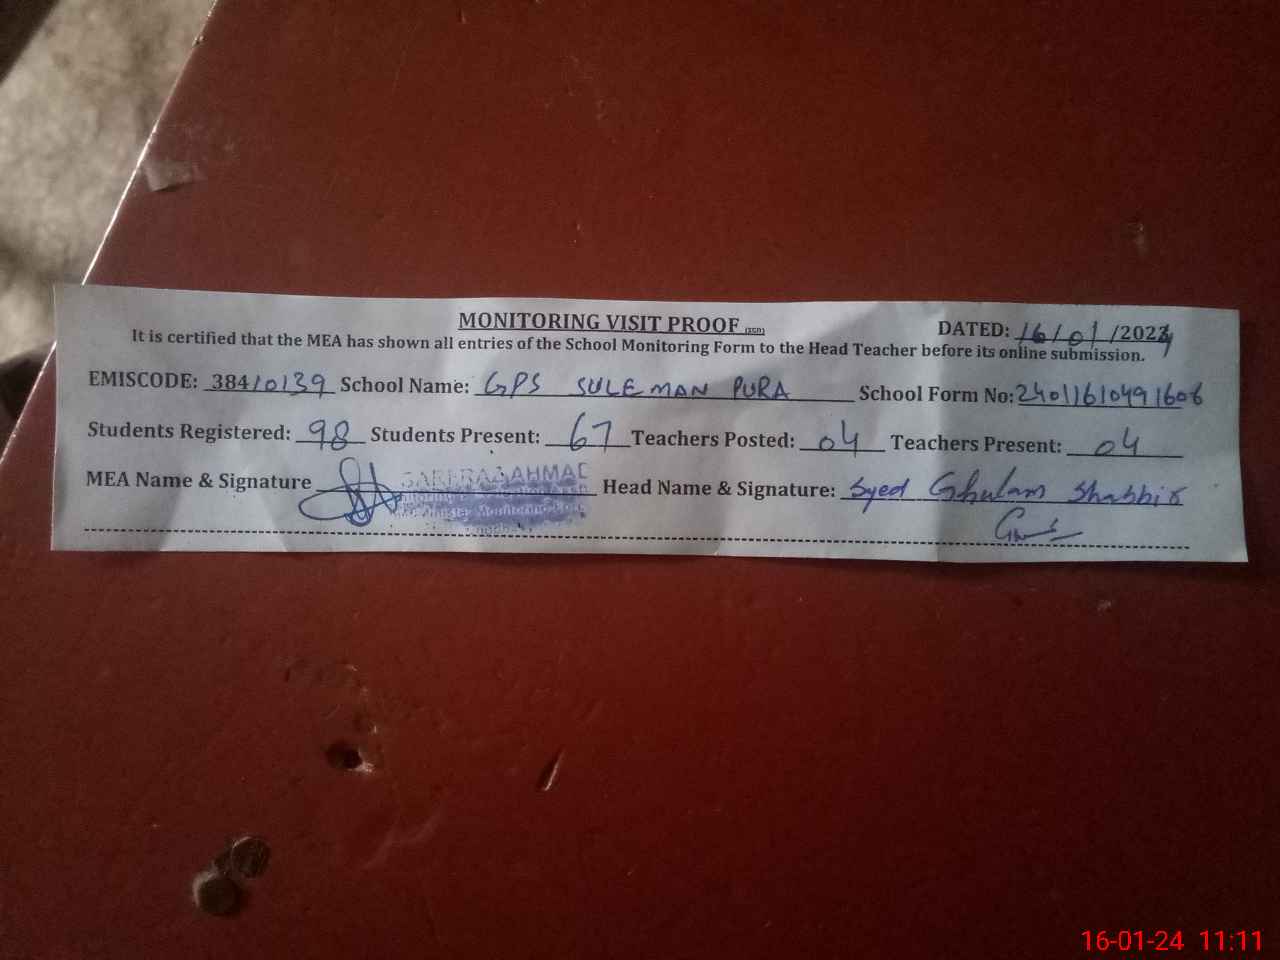 MONITORING VISIT PROOF (SGD)
DATED: 16/01/2024
It is certified that the MEA has shown all entries of the School Monitoring Form to the Head Teacher before its online submission.
EMISCODE: 38410139 School Name: GPS SULEMAN PURA School Form No: 24011610491606
Students Registered: 98 Students Present: 67 Teachers Posted: 04 Teachers Present: 04
MEA Name & Signature AHMAD Head Name & Signature: Syed Ghulam Shabbir
16-01-24 11:11